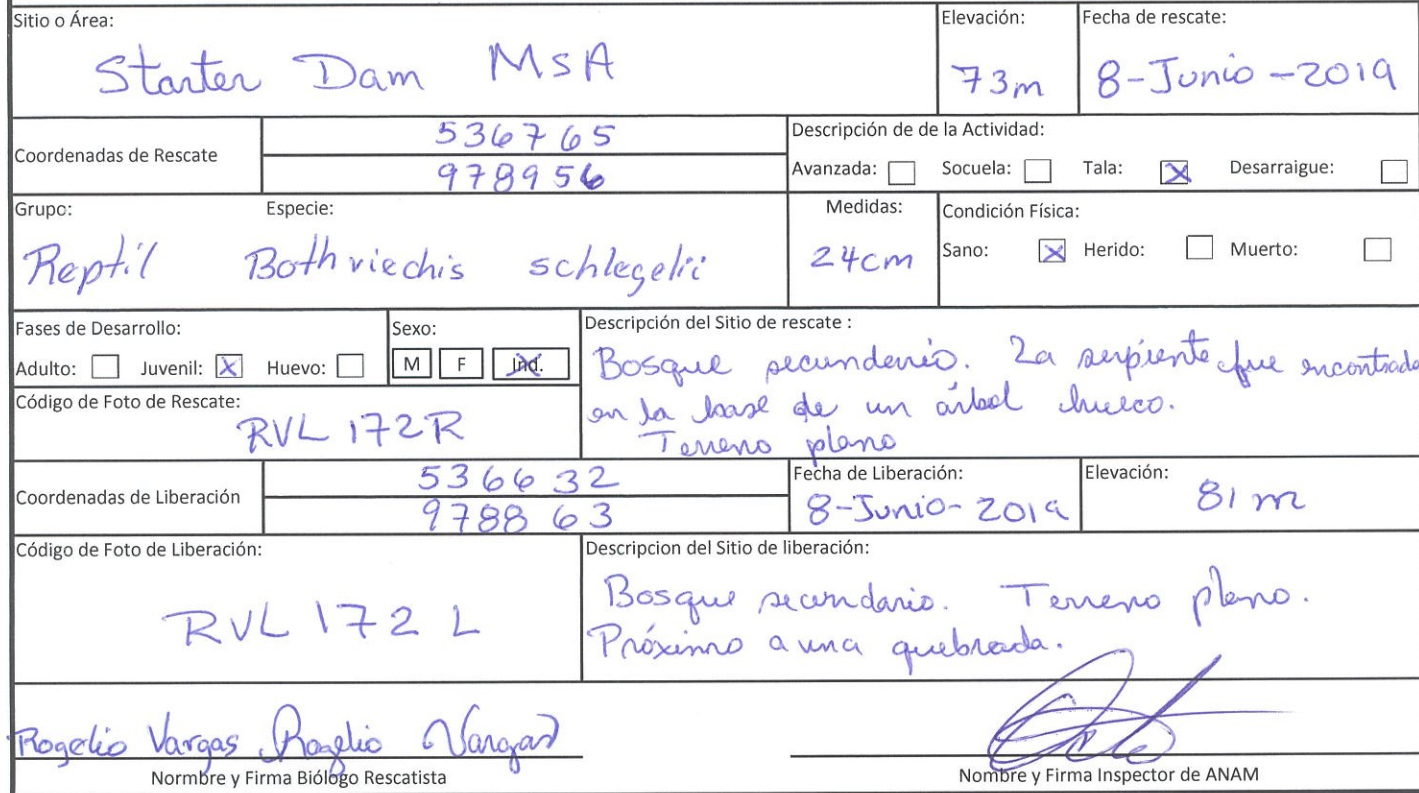 Sitio o Área:
Starter Dam MSA
Elevación:
73m
Fecha de rescate:
8-Junio-2019
Coordenadas de Rescate
536765
978956
Descripción de de la Actividad:
Avanzada: Socuela: Tala: X Desarraigue:
Grupo: Especie:
Reptil Bothriechis schlegelii
Medidas:
24cm
Condición Física:
Sano: X Herido: Muerto:
Fases de Desarrollo:
Adulto: Juvenil: X Huevo:
Sexo:
M F Ind. X
Código de Foto de Rescate:
RVL 172R
Descripción del Sitio de rescate :
Bosque secundario. La serpiente fue encontrada
en la base de un árbol hueco.
Terreno plano
Coordenadas de Liberación
536632
978863
Fecha de Liberación:
8-Junio-2019
Elevación:
81 m
Código de Foto de Liberación:
RVL 172 L
Descripcion del Sitio de liberación:
Bosque secundario. Terreno plano.
Próximo a una quebrada.
Rogelio Vargas Rogelio Vargas
Normbre y Firma Biólogo Rescatista
Nombre y Firma Inspector de ANAM